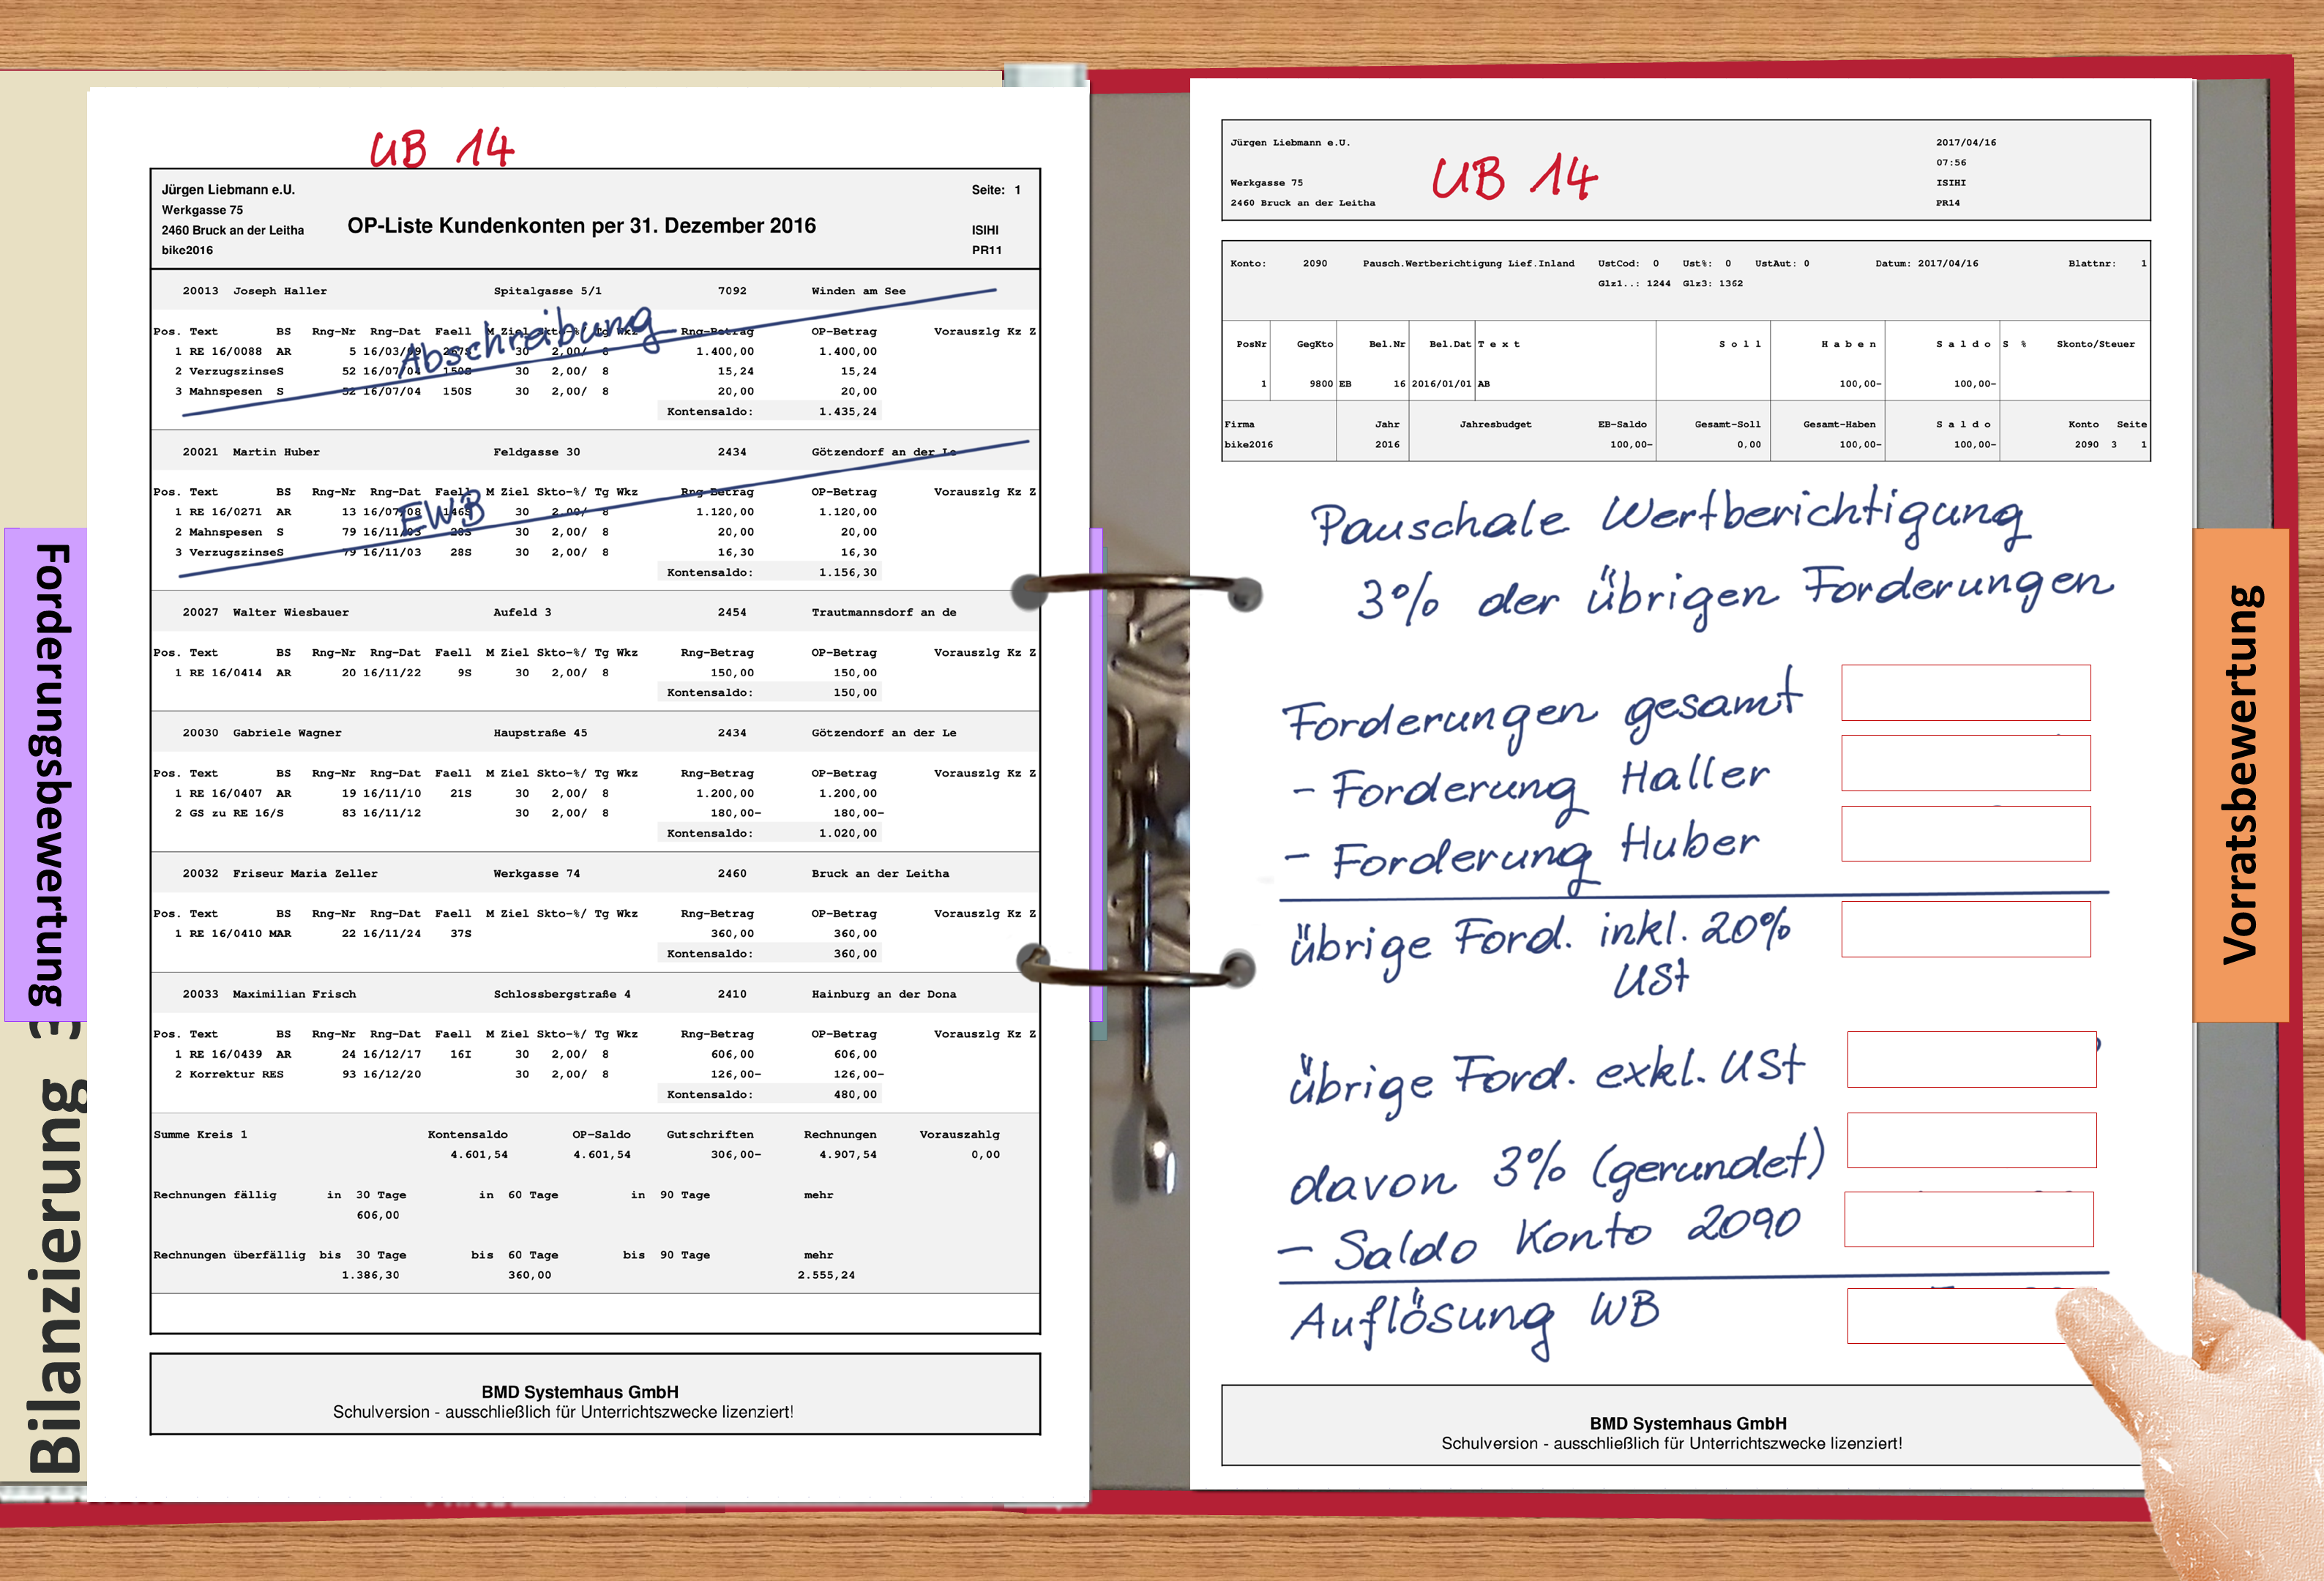 Forderungsbewertung
Bilanzierung 3
UB 14
Jürgen Liebmann e.U. Seite: 1
Werkgasse 75
OP-Liste Kundenkonten per 31. Dezember 2016
2460 Bruck an der Leitha ISIHI
bike2016 PR11
20013 Joseph Haller Spitalgasse 5/1 7092 Winden am See
Abschreibung
Pos. Text BS Rng-Nr Rng-Dat Faell M Ziel Skto-%/ Tg Wkz Rng-Betrag OP-Betrag Vorauszlg Kz Z
1 RE 16/0088 AR 5 16/03/09 267S 30 2,00/ 8 1.400,00 1.400,00
2 VerzugszinseS 52 16/07/04 150S 30 2,00/ 8 15,24 15,24
3 Mahnspesen S 52 16/07/04 150S 30 2,00/ 8 20,00 20,00
Kontensaldo: 1.435,24
20021 Martin Huber Feldgasse 30 2434 Götzendorf an der Le
Pos. Text BS Rng-Nr Rng-Dat Faell M Ziel Skto-%/ Tg Wkz Rng-Betrag OP-Betrag Vorauszlg Kz Z
EWB
1 RE 16/0271 AR 13 16/07/08 146S 30 2,00/ 8 1.120,00 1.120,00
2 Mahnspesen S 79 16/11/03 28S 30 2,00/ 8 20,00 20,00
3 VerzugszinseS 79 16/11/03 28S 30 2,00/ 8 16,30 16,30
Kontensaldo: 1.156,30
20027 Walter Wiesbauer Aufeld 3 2454 Trautmannsdorf an de
Pos. Text BS Rng-Nr Rng-Dat Faell M Ziel Skto-%/ Tg Wkz Rng-Betrag OP-Betrag Vorauszlg Kz Z
1 RE 16/0414 AR 20 16/11/22 9S 30 2,00/ 8 150,00 150,00
Kontensaldo: 150,00
20030 Gabriele Wagner Haupstraße 45 2434 Götzendorf an der Le
Pos. Text BS Rng-Nr Rng-Dat Faell M Ziel Skto-%/ Tg Wkz Rng-Betrag OP-Betrag Vorauszlg Kz Z
1 RE 16/0407 AR 19 16/11/10 21S 30 2,00/ 8 1.200,00 1.200,00
2 GS zu RE 16/S 83 16/11/12 30 2,00/ 8 180,00- 180,00-
Kontensaldo: 1.020,00
20032 Friseur Maria Zeller Werkgasse 74 2460 Bruck an der Leitha
Pos. Text BS Rng-Nr Rng-Dat Faell M Ziel Skto-%/ Tg Wkz Rng-Betrag OP-Betrag Vorauszlg Kz Z
1 RE 16/0410 MAR 22 16/11/24 37S 360,00 360,00
Kontensaldo: 360,00
20033 Maximilian Frisch Schlossbergstraße 4 2410 Hainburg an der Dona
Pos. Text BS Rng-Nr Rng-Dat Faell M Ziel Skto-%/ Tg Wkz Rng-Betrag OP-Betrag Vorauszlg Kz Z
1 RE 16/0439 AR 24 16/12/17 16I 30 2,00/ 8 606,00 606,00
2 Korrektur RES 93 16/12/20 30 2,00/ 8 126,00- 126,00-
Kontensaldo: 480,00
Summe Kreis 1 Kontensaldo OP-Saldo Gutschriften Rechnungen Vorauszahlg
4.601,54 4.601,54 306,00- 4.907,54 0,00
Rechnungen fällig in 30 Tage in 60 Tage in 90 Tage mehr
606,00
Rechnungen überfällig bis 30 Tage bis 60 Tage bis 90 Tage mehr
1.386,30 360,00 2.555,24
BMD Systemhaus GmbH
Schulversion - ausschließlich für Unterrichtszwecke lizenziert!
Jürgen Liebmann e.U. 2017/04/16
UB 14
07:56
Werkgasse 75 ISIHI
2460 Bruck an der Leitha PR14
Konto: 2090 Pausch.Wertberichtigung Lief.Inland UstCod: 0 Ust%: 0 UstAut: 0 Datum: 2017/04/16 Blattnr: 1
Glz1..: 1244 Glz3: 1362
PosNr GegKto Bel.Nr Bel.Dat T e x t S o l l H a b e n S a l d o S % Skonto/Steuer
1 9800 EB 16 2016/01/01 AB 100,00- 100,00-
Firma Jahr Jahresbudget EB-Saldo Gesamt-Soll Gesamt-Haben S a l d o Konto Seite
bike2016 2016 100,00- 0,00 100,00- 100,00- 2090 3 1
Pauschale Wertberichtigung
3% der übrigen Forderungen
Forderungen gesamt
- Forderung Haller
- Forderung Huber
übrige Ford. inkl. 20%
USt
übrige Ford. exkl. USt
davon 3% (gerundet)
- Saldo Konto 2090
Auflösung WB
BMD Systemhaus GmbH
Schulversion - ausschließlich für Unterrichtszwecke lizenziert!
Vorratsbewertung